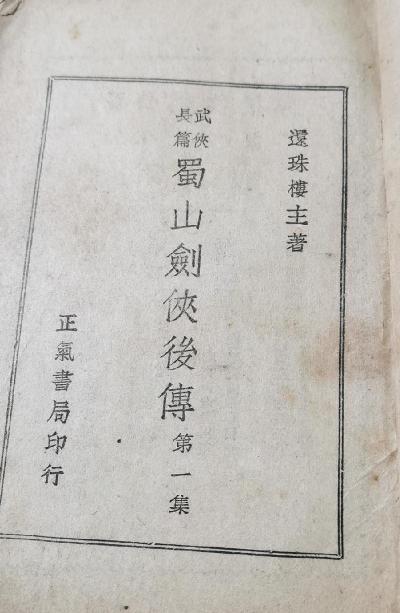 還珠樓主著
武俠長篇
蜀山劍俠後傳 第一集
正氣書局印行